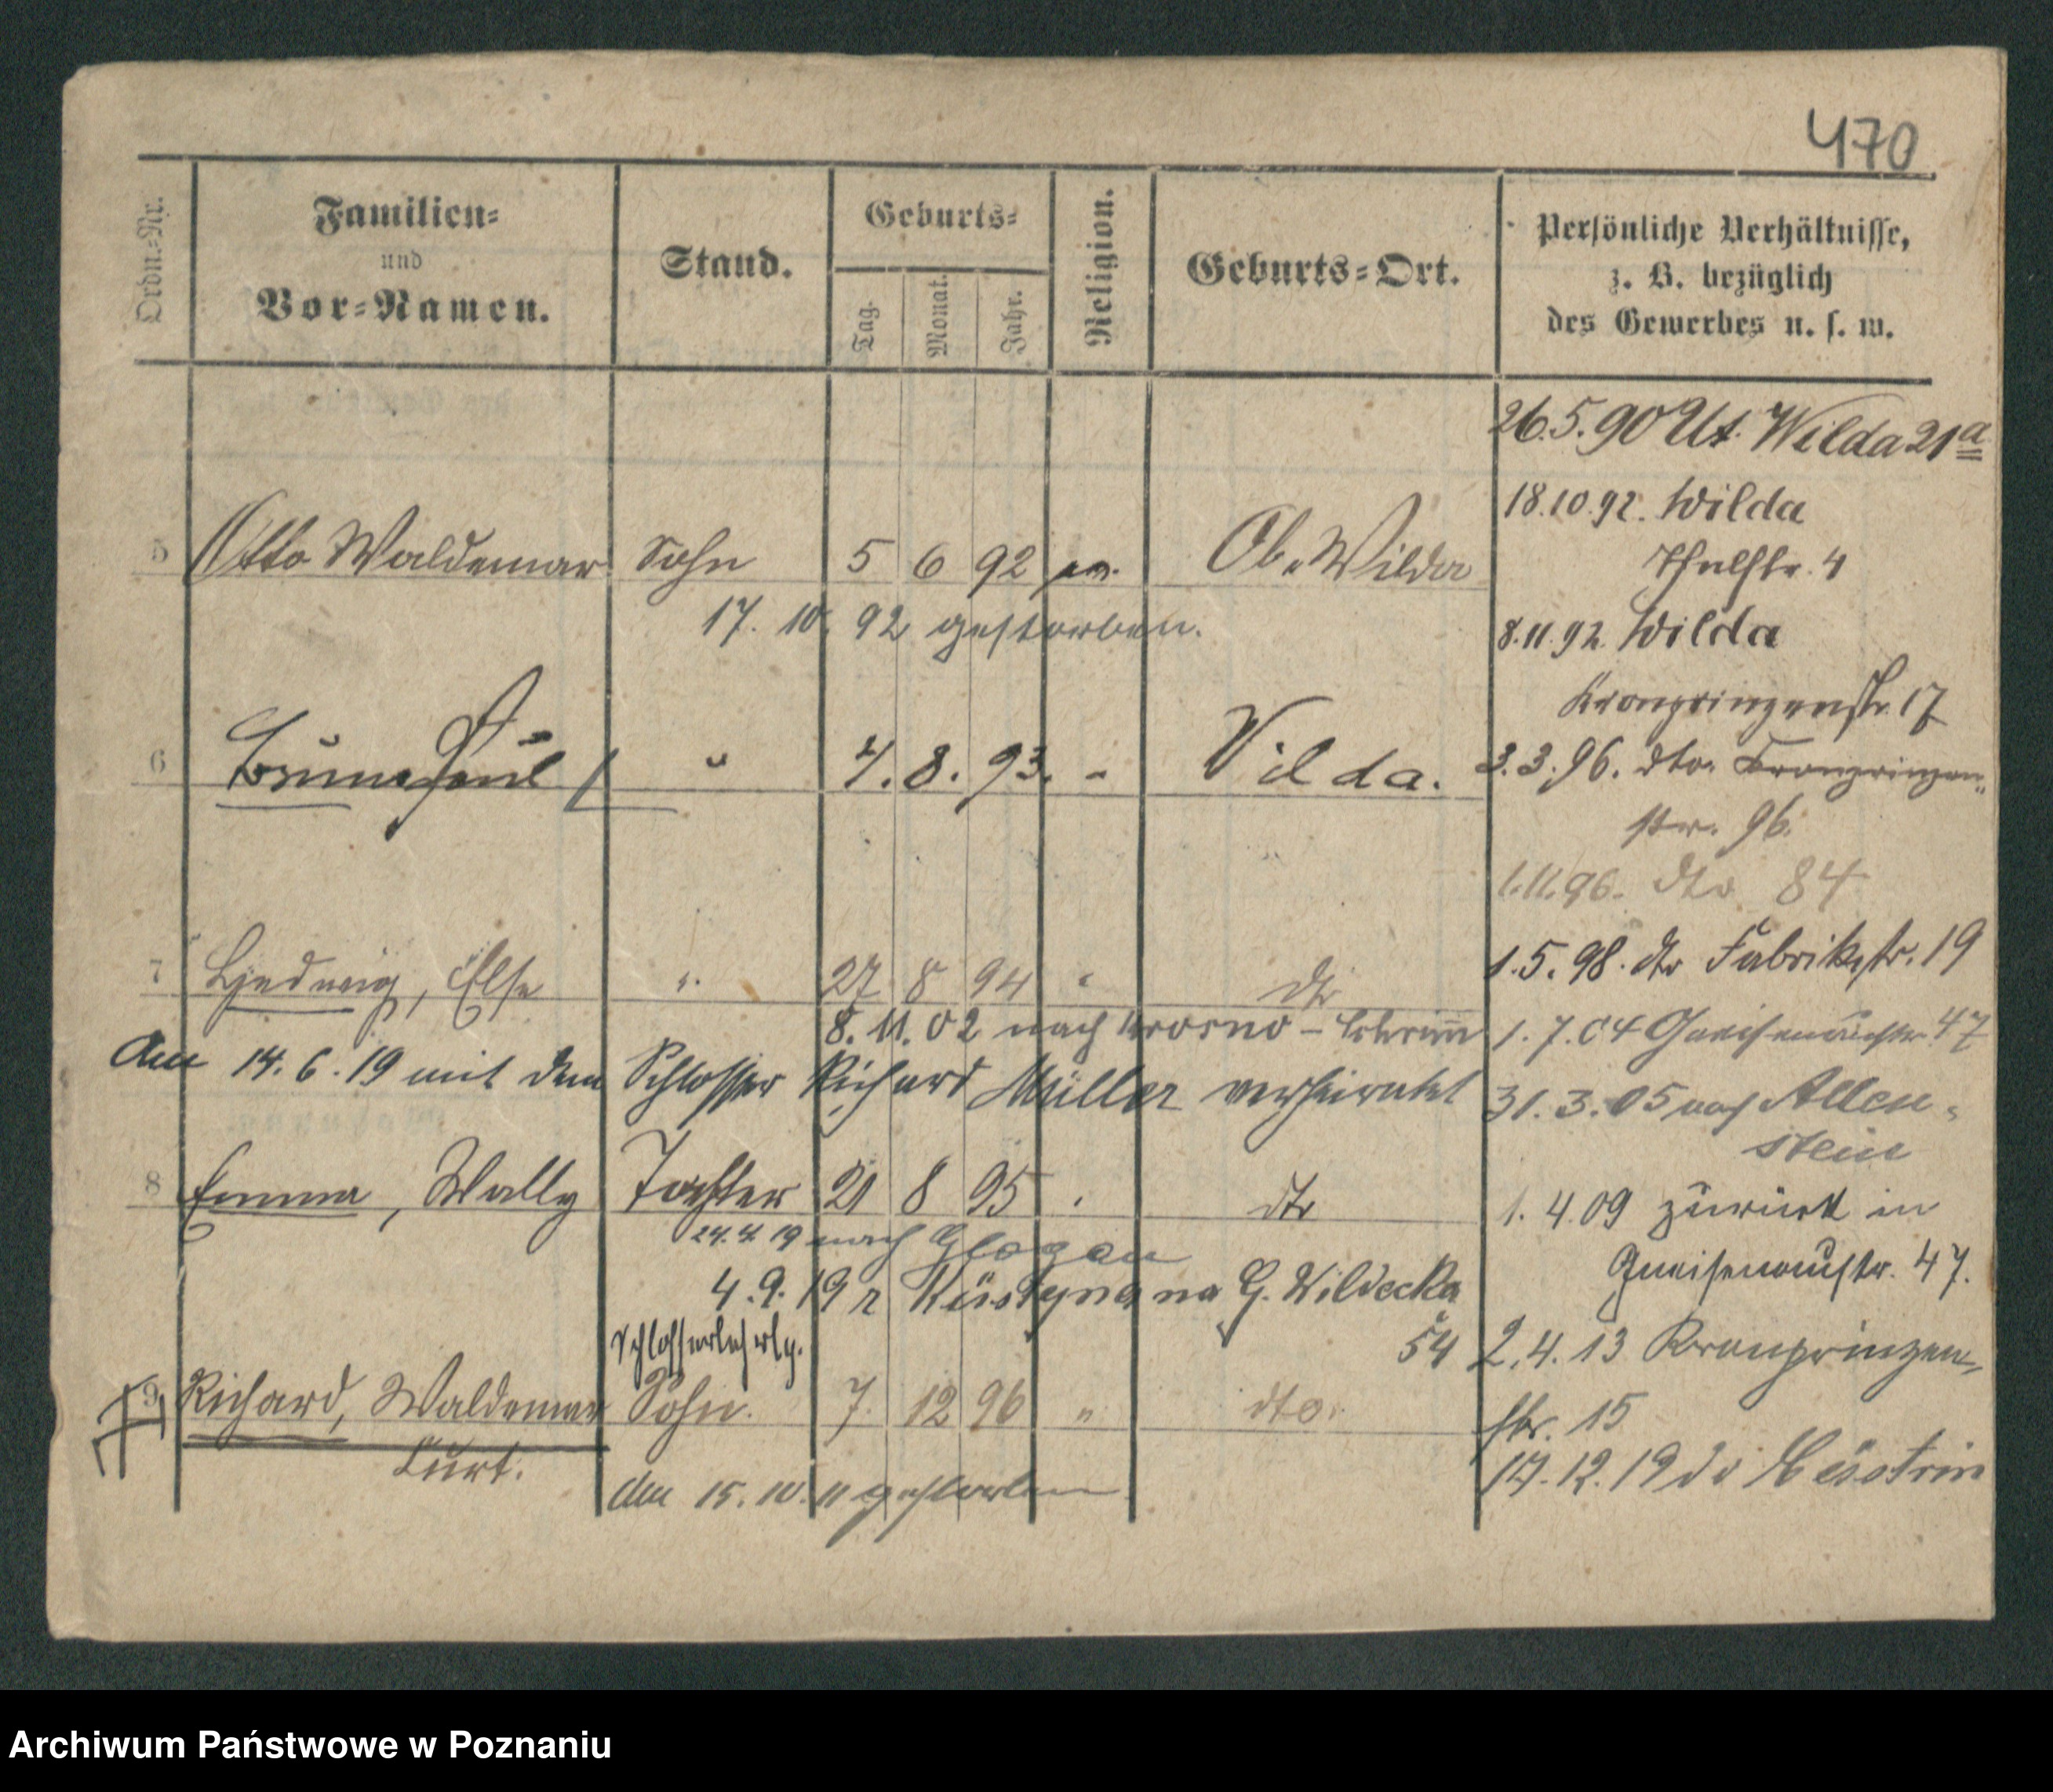 470
Ordn.=Nr.
Familien=
und
Vor=Namen.
Stand.
Geburts=
Tag.
Monat.
Jahr.
Religion.
Geburts=Ort.
Persönliche Verhältnisse,
z. B. bezüglich
des Gewerbes u. s. w.
26.5.90 Ut. Wilda 21a
18.10.92. Wilda
Thulstr. 4
5 Otto Waldemar Sohn 5 6 92 ev. Ob. Wilda
17. 10. 92 gestorben.
8.11.92 Wilda
Kronprinzenstr. 17
6 Bruno Paul " 4. 8. 93. " Wilda.
3.3.96. dto. Kronprinzen"
str. 96.
1.11.96. dto 84
1.5.98. dto Fabrikstr. 19
7 Hedwig, Else ". 27 8 94 " dto
8. 11. 02 nach Krosno - Schrimm
1.7.04 Gneisenaustr. 47
Am 14. 6. 19 mit dem Schlosser Richard Müller verheiratet
31. 3. 05 nach Allen-
stein
8 Emma, Wally Tochter 21 8 95 " dto
1. 4. 09 zurück in
24. 4. 19 nach Glogau
Gneisenaustr. 47.
4. 9. 19 z Küstryna na G. Wildecka
54
2. 4. 13 Kronprinzen-
str. 15
Schlosserlehrlg.
9 Richard, Waldemar Sohn. 7. 12 96 " dto.
Curt.
den 15. 10. 11 gestorben
17. 12. 19 do Cüstrin
Archiwum Państwowe w Poznaniu